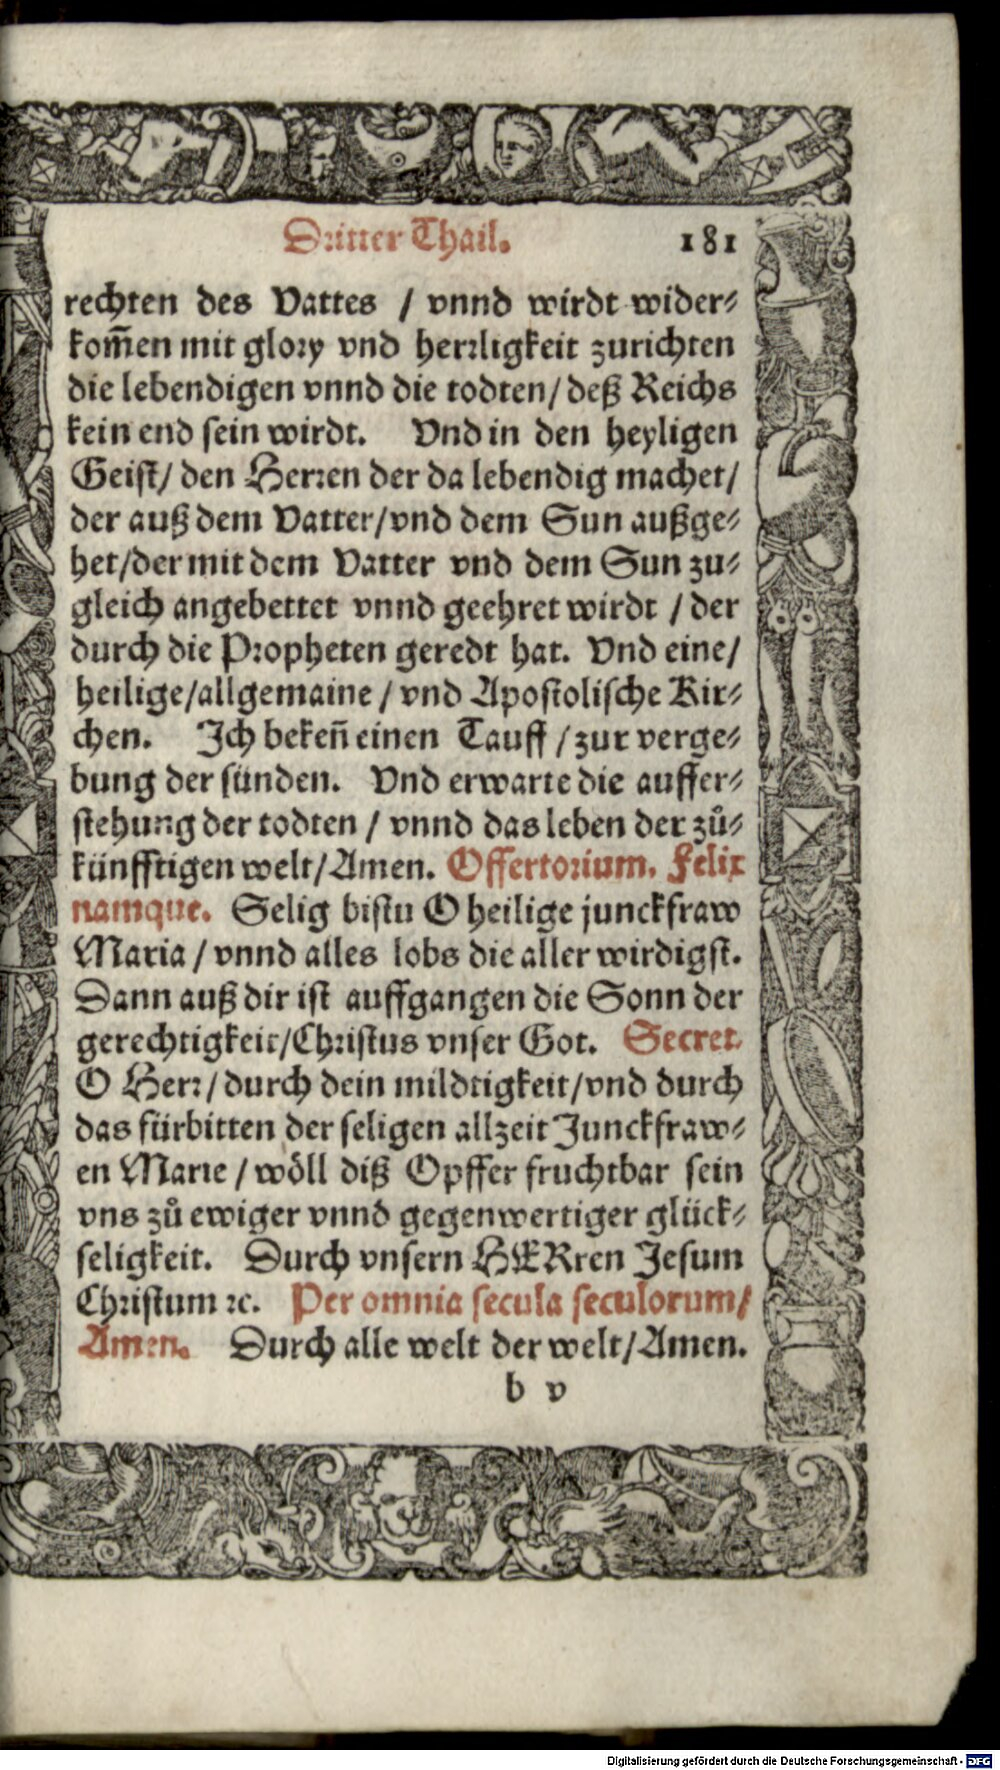 Dritter Thail. 181
rechten des Vattes / vnnd wirdt wider⸗
kom̄en mit glory vnd herrligkeit zurichten
die lebendigen vnnd die todten/ deß Reichs
kein end sein wirdt. Vnd in den heyligen
Geist/ den Herren der da lebendig machet/
der auß dem Vatter/vnd dem Sun außge⸗
het/der mit dem Vatter vnd dem Sun zu⸗
gleich angebettet vnnd geehret wirdt / der
durch die Propheten geredt hat. Vnd eine/
heilige/allgemaine / vnd Apostolische Kir⸗
chen. Ich beken̄ einen Tauff / zur verge⸗
bung der sünden. Vnd erwarte die auffer⸗
stehung der todten / vnnd das leben der zů⸗
künfftigen welt/Amen. Offertorium. Felix
namque. Selig bistu O heilige junckfraw
Maria / vnnd alles lobs die aller wirdigst.
Dann auß dir ist auffgangen die Sonn der
gerechtigkeit/Christus vnser Got. Secret.
O Herr/durch dein mildtigkeit/vnd durch
das fürbitten der seligen allzeit Junckfraw⸗
en Marie / wöll diß Opffer fruchtbar sein
vns zů ewiger vnnd gegenwertiger glück⸗
seligkeit. Durch vnsern HERren Jesum
Christum ꝛc. Per omnia secula seculorum/
Amen. Durch alle welt der welt/Amen.
b v
Digitalisierung gefördert durch die Deutsche Forschungsgemeinschaft - DFG